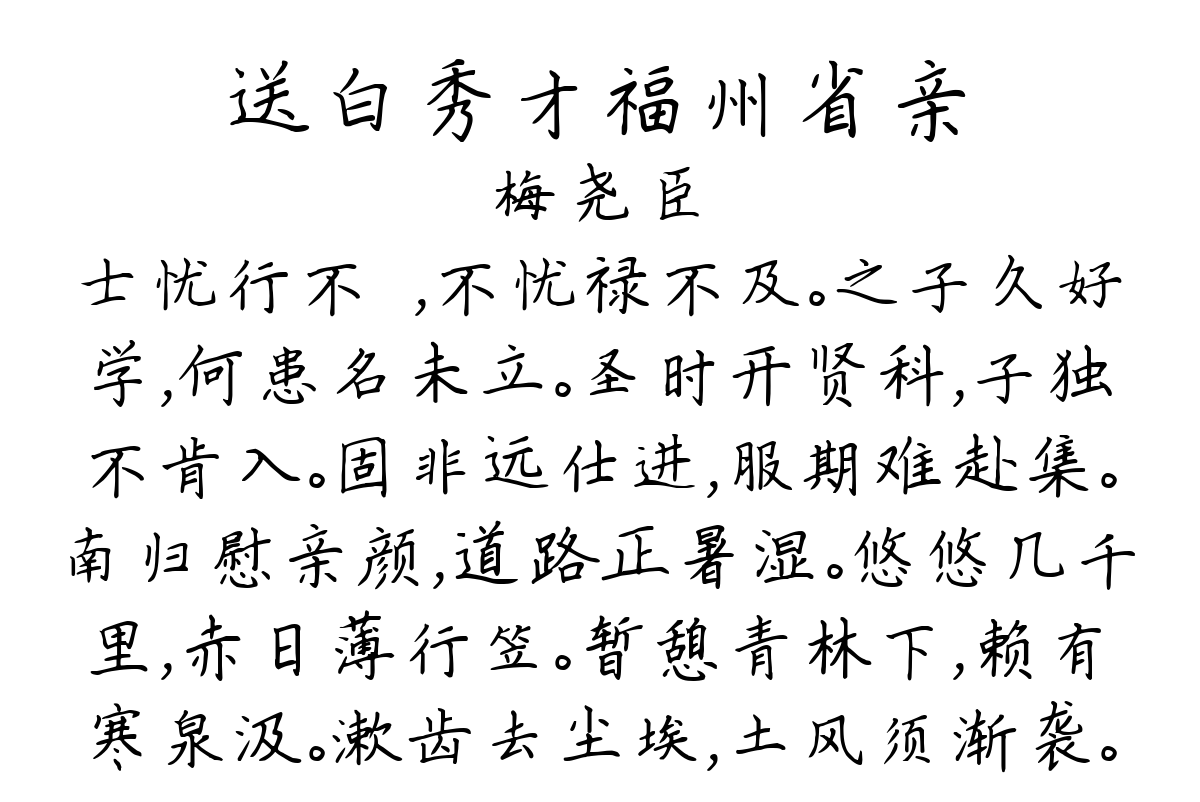 送白秀才福州省亲
梅尧臣
士忧行不 ,不忧禄不及。之子久好
学,何患名未立。圣时开贤科,子独
不肯入。固非远仕进,服期难赴集。
南归慰亲颜,道路正暑湿。悠悠几千
里,赤日薄行笠。暂憩青林下,赖有
寒泉汲。漱齿去尘埃,土风须渐袭。